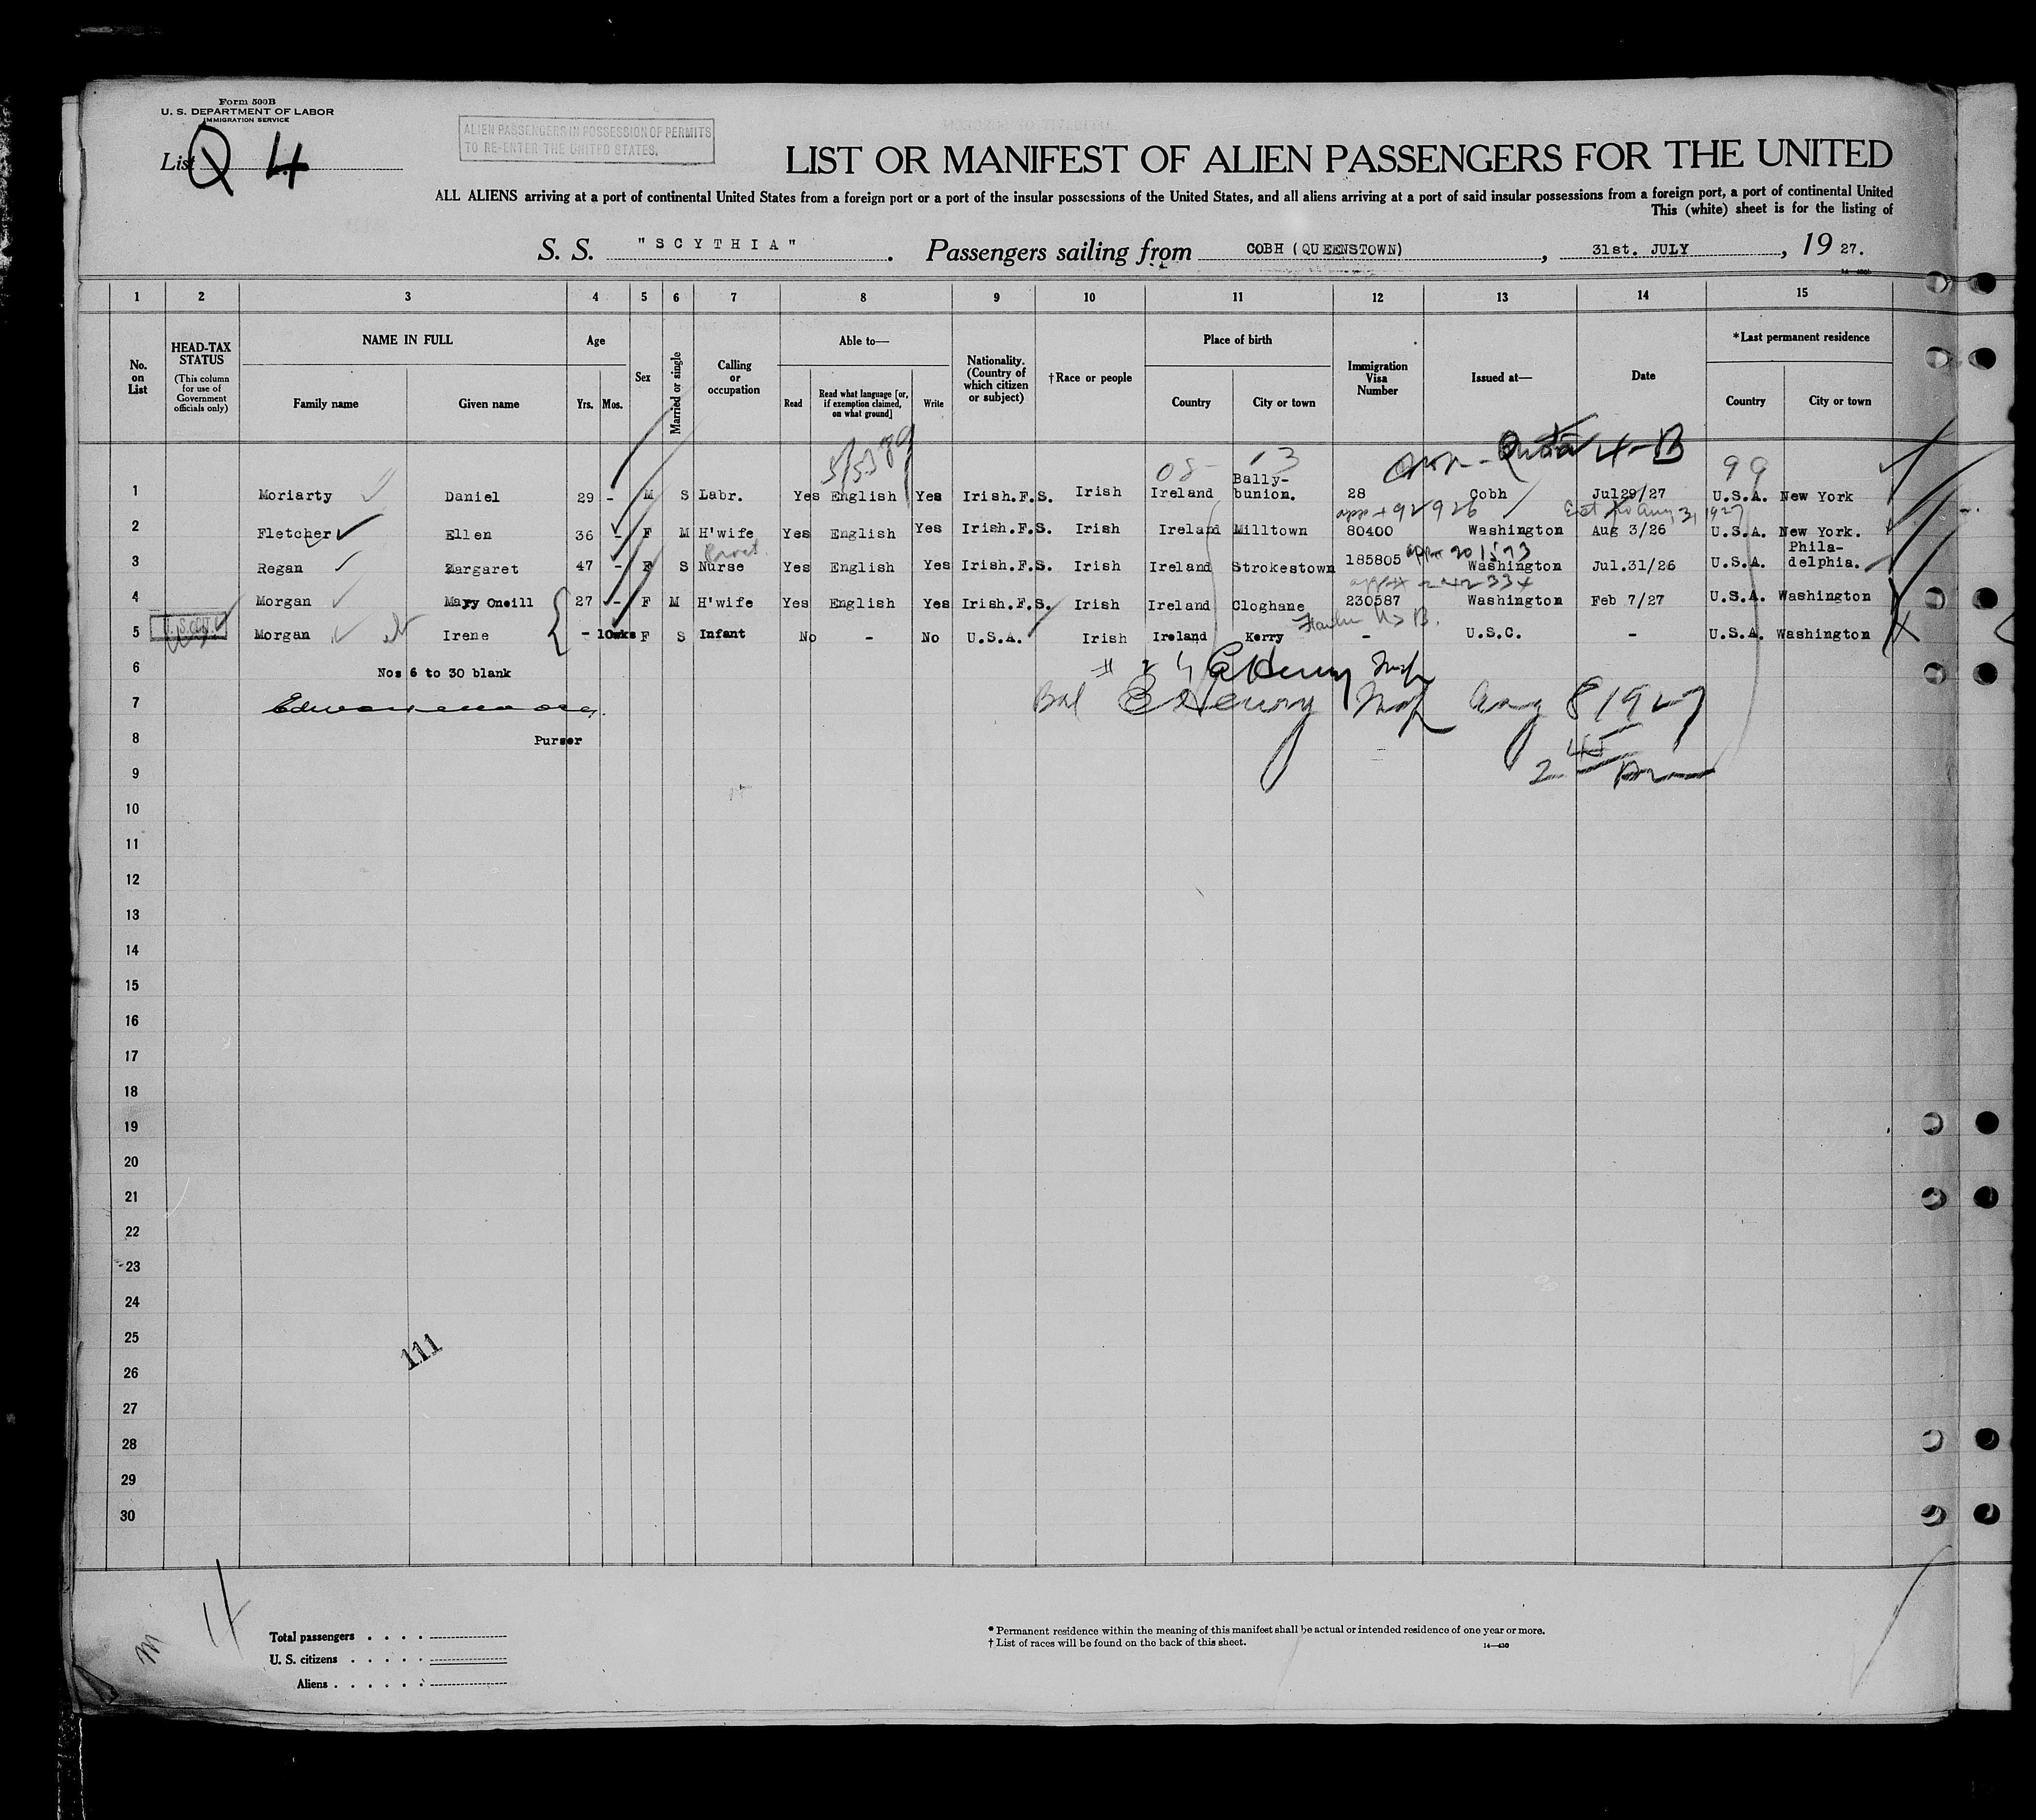 Form 500B
U. S. DEPARTMENT OF LABOR
IMMIGRATION SERVICE
List Q 4
ALIEN PASSENGERS IN POSSESSION OF PERMITS
TO RE-ENTER THE UNITED STATES.
LIST OR MANIFEST OF ALIEN PASSENGERS FOR THE UNITED
ALL ALIENS arriving at a port of continental United States from a foreign port or a port of the insular possessions of the United States, and all aliens arriving at a port of said insular possessions from a foreign port, a port of continental United
This (white) sheet is for the listing of
S. S. "SCYTHIA". Passengers sailing from COBH (QUEENSTOWN), 31st. JULY, 1927.
1 2 3 4 5 6 7 8 9 10 11 12 13 14 15
No. on List
HEAD-TAX STATUS
(This column for use of Government officials only)
NAME IN FULL
Family name
Given name
Age
Yrs. Mos.
Sex
Married or single
Calling or occupation
Able to—
Read
Read what language [or, if exemption claimed, on what ground]
Write
Nationality. (Country of which citizen or subject)
†Race or people
Place of birth
Country
City or town
Immigration Visa Number
Issued at—
Date
*Last permanent residence
Country
City or town
4-B
5/5389
05 13
99
1 Moriarty Daniel 29 - M S Labr. Yes English Yes Irish.F.S. Irish Ireland Bally-bunion. 28 Cobh Jul29/27 U.S.A. New York
92926
Aug 3, 1927
2 Fletcher Ellen 36 - F M H'wife Yes English Yes Irish.F.S. Irish Ireland Milltown 80400 Washington Aug 3/26 U.S.A. New York.
201573
3 Regan Margaret 47 - F S Nurse Yes English Yes Irish.F.S. Irish Ireland Strokestown 185805 Washington Jul.31/26 U.S.A. Phila-delphia.
4 Morgan Mary Oneill 27 - F M H'wife Yes English Yes Irish.F.S. Irish Ireland Cloghane 230587 Washington Feb 7/27 U.S.A. Washington
5 Morgan Irene - F S Infant No - No U.S.A. Irish Ireland Kerry - U.S.C. - U.S.A. Washington
6 Nos 6 to 30 blank
7 Aug 8 1927
8 Purser
9
10
11
12
13
14
15
16
17
18
19
20
21
22
23
24
25
111
26
27
28
29
30
Total passengers
U. S. citizens
Aliens
* Permanent residence within the meaning of this manifest shall be actual or intended residence of one year or more.
† List of races will be found on the back of this sheet.
14—430